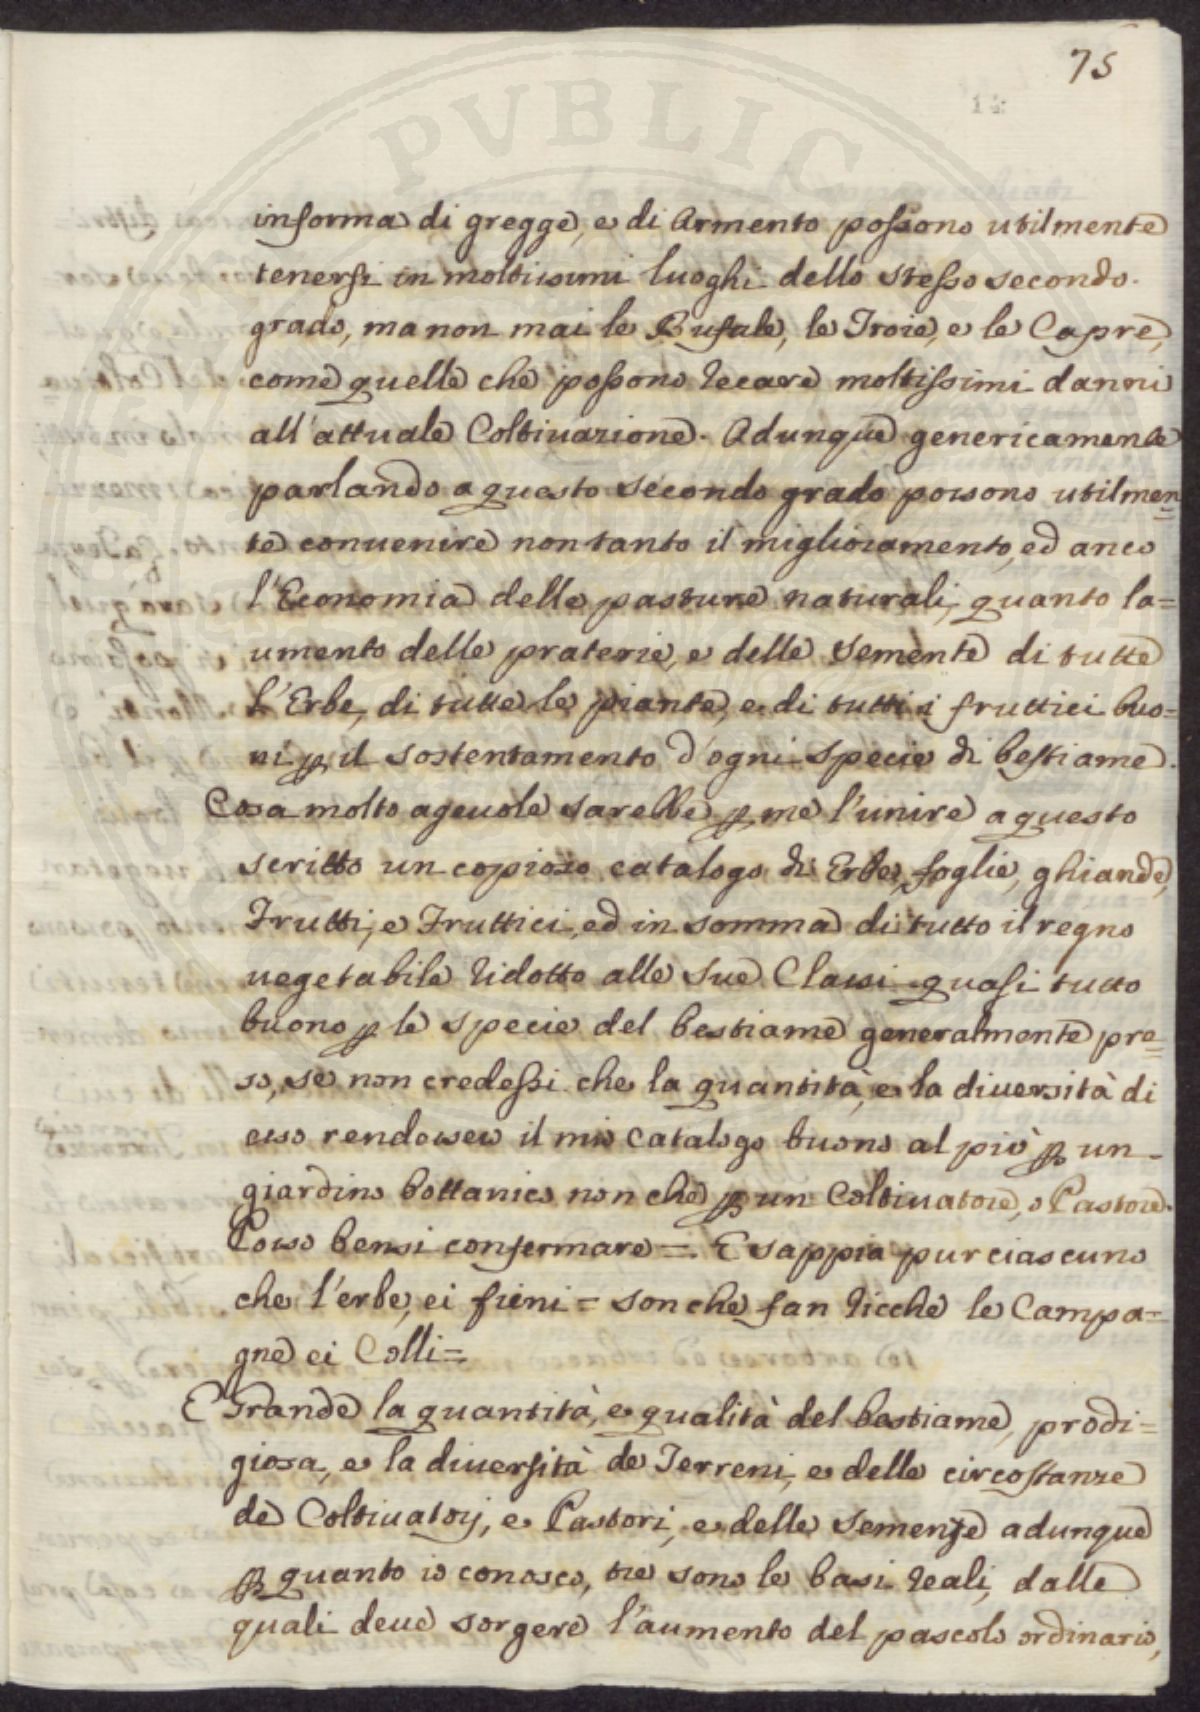 75
14
PVBLIC
informa di gregge, e di Armento possono utilmente
tenersi in moltissimi luoghi dello stesso secondo
grado, ma non mai le Bufale, le Troie, e le Capre,
come quelle che possono recare moltissimi danni
all'attuale Coltivazione. Adunque genericamente
parlando a questo secondo grado possono utilmen=
te convenire non tanto il miglioramento, ed anco
l'Economia delle pasture naturali, quanto la=
umento delle praterie, e delle semente di tutte
l'Erbe, di tutte le piante, e di tutti i fruttici buo=
ni p il sostentamento d'ogni specie di bestiame.
Cosa molto agevole sarebbe p me l'unire a questo
scritto un copioso catalogo di Erbe, foglie, ghiande,
Frutti, e Fruttici, ed in somma di tutto il regno
vegetabile ridotto alle sue Classi quasi tutto
buono p le specie del bestiame generalmente pre=
so, se non credessi che la quantità, e la diversità di
esso rendesse il mio catalogo buono al più p un
giardino bottanico non che p un Coltivatore, o Pastore.
Posso bensi confermare =. E sappia pur ciascuno
che l'erbe, ei fieni = son che fan ricche le Campa=
gne ei Colli =
E Grande la quantità, e qualità del bestiame, prodi=
giosa, e la diversità de Terreni, e delle circostanze
de Coltivatorj, e Pastori, e delle semenze adunque
p quanto io conosco, tre sono le basi reali, dalle
quali deve sorgere l'aumento del pascolo ordinario,